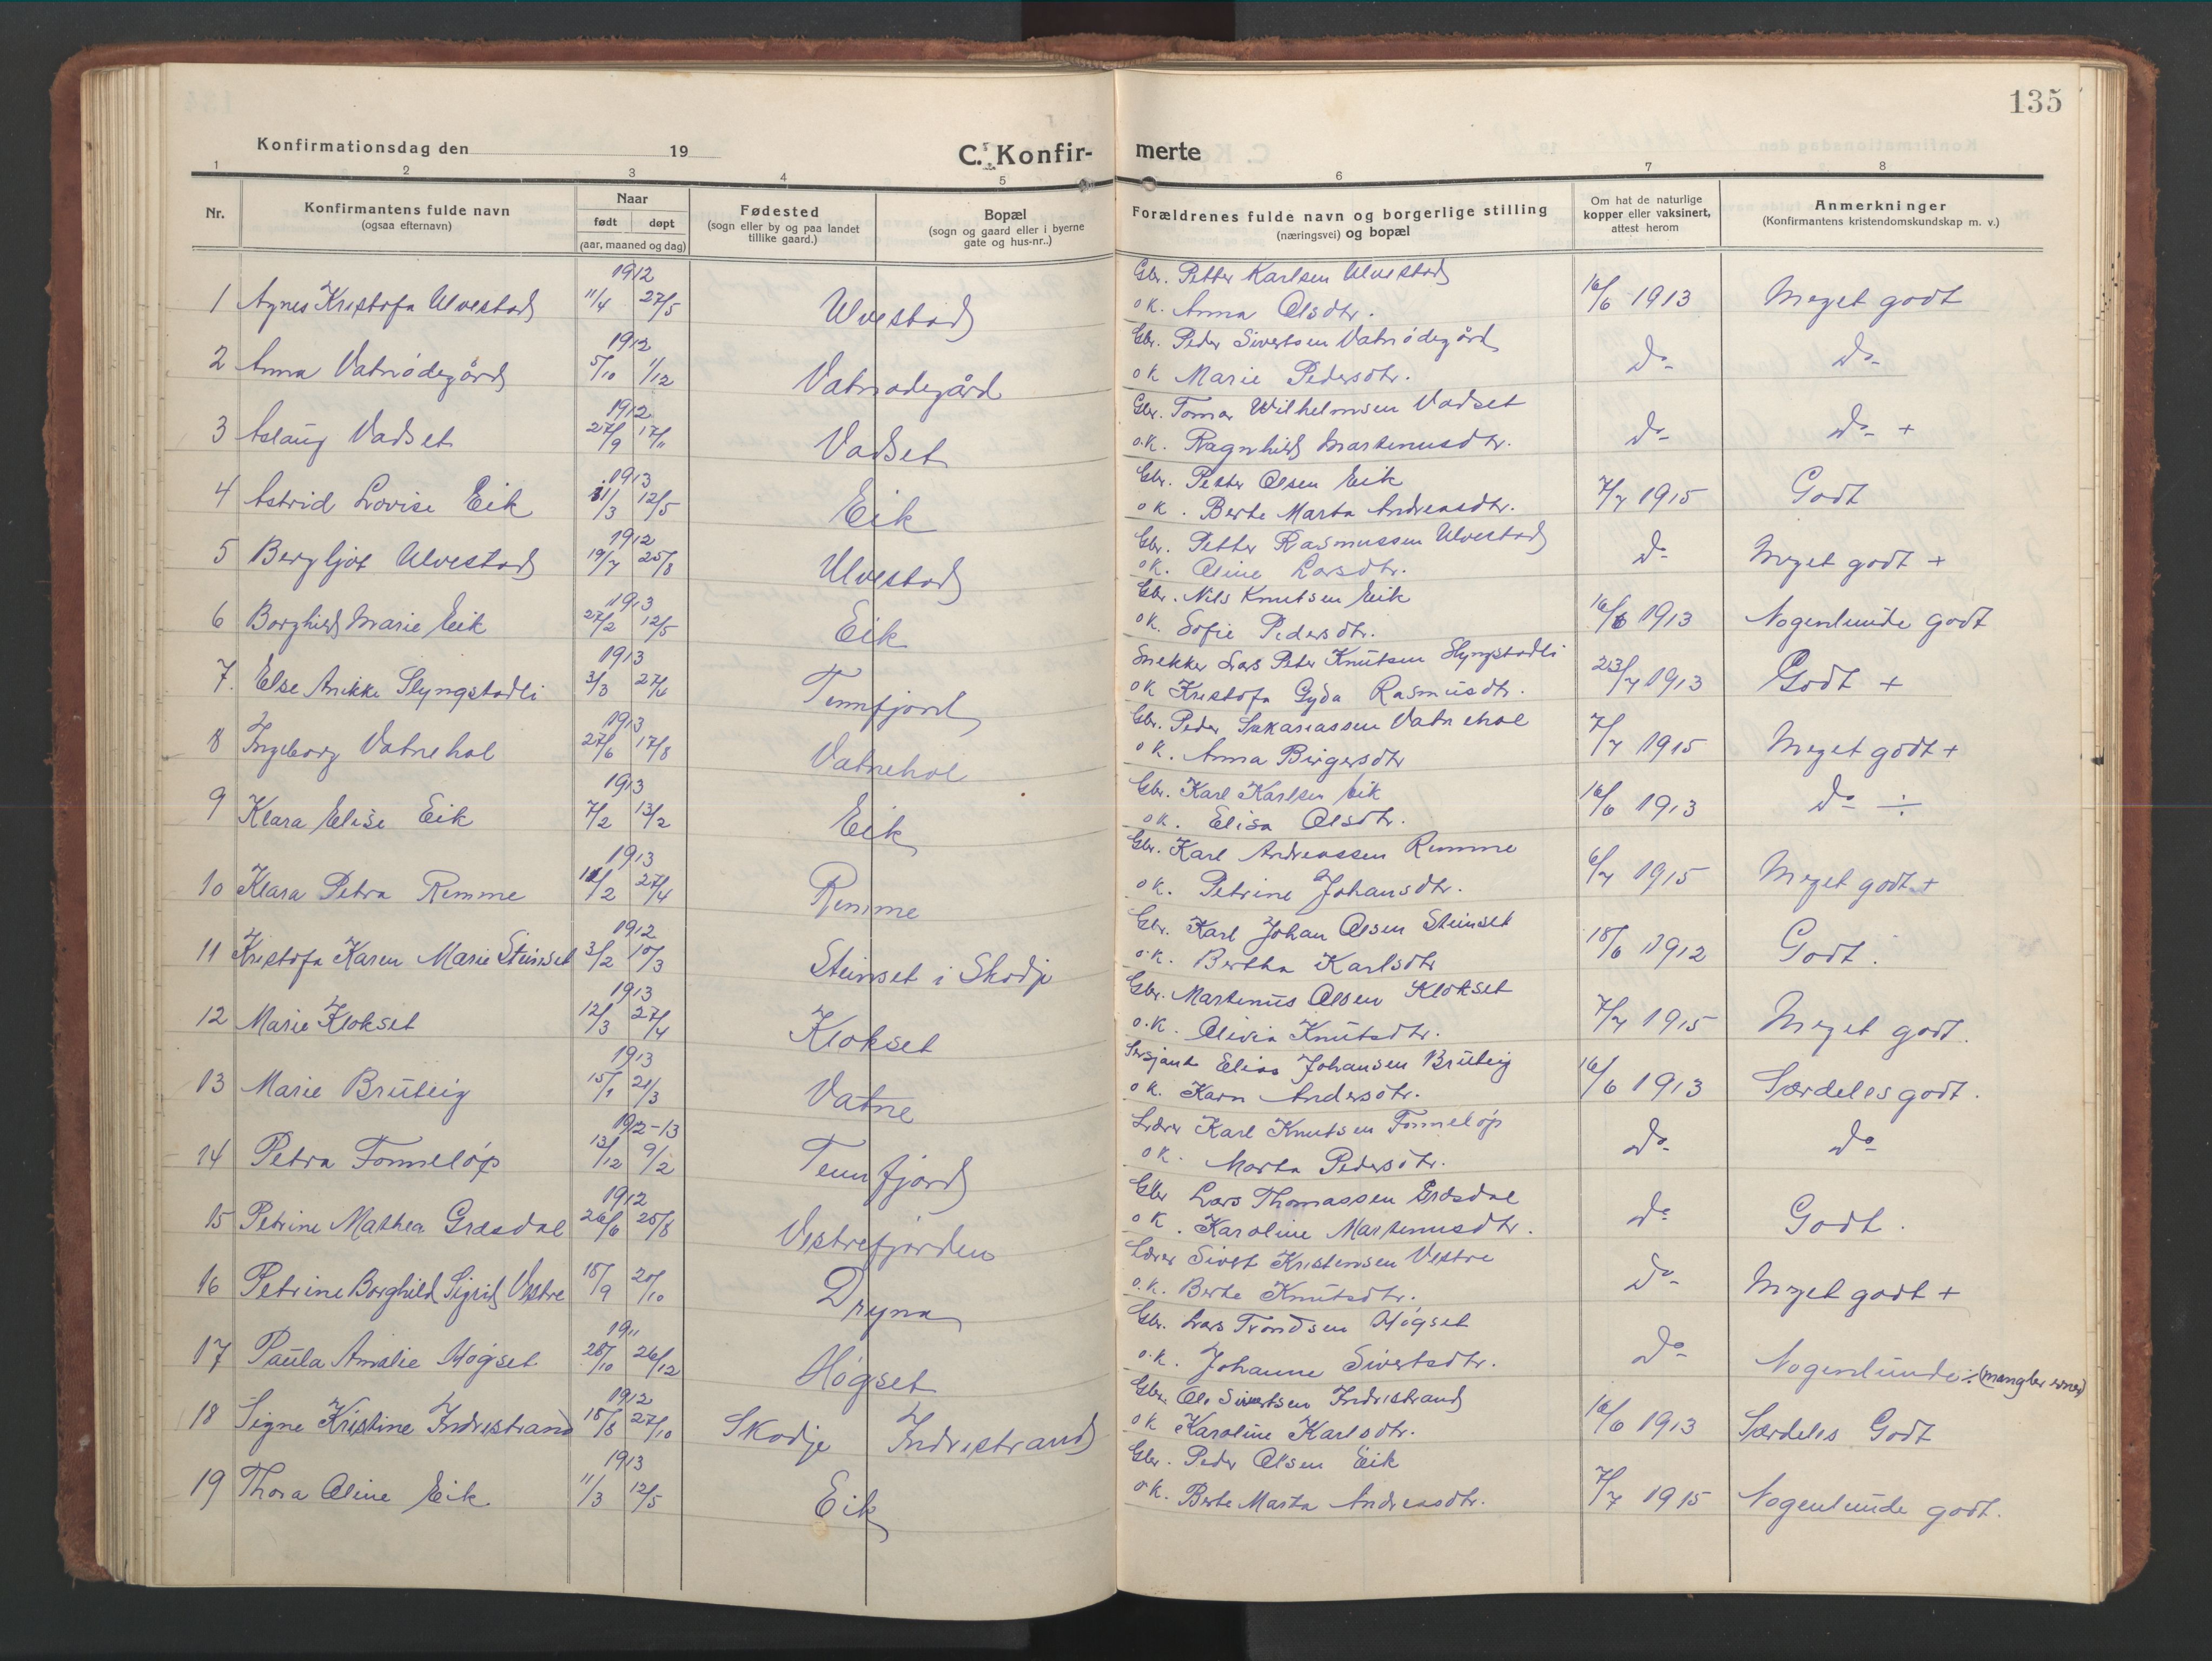 135
Konfirmationsdag den 19
C. Konfirmerte
1 2 3 4 5 6 7 8
Nr.
Konfirmantens fulde navn (ogsaa efternavn)
Naar født døpt (aar, maaned og dag)
Fødested (sogn eller by og paa landet tillike gaard.)
Bopæl (sogn og gaard eller i byerne gate og hus-nr..)
Forældrenes fulde navn og borgerlige stilling (næringsvei) og bopæl
Om hat de naturlige kopper eller vaksinert, attest herom
Anmerkninger (Konfirmantens kristendomskundskap m. v.)
1 Agnes Kristofa Ulvestad 1912 11/4 27/5 Ulvestad Gbr. Petter Karlsen Ulvestad 16/6 1913 Meget godt
o k. Anna Olsdtr.
2 Anna Vatnødegård 1912 5/10 1/12 Vatnødegård Gbr. Peder Sivertsen Vatnødegård do do
o k Marie Pedersdtr.
3 Aslaug Vadset 1912 27/9 17/11 Vadset Gbr. Tomas Wilhelmsen Vadset do do +
o.k. Ragnhild Martinusdtr.
4 Astrid Lovise Eik 1913 11/3 12/5 Eik Gbr. Peder Olsen Eik 7/7 1915 Godt
o k. Berte Marta Andreasdtr.
5 Bergljot Ulvestad 1912 19/7 25/8 Ulvestad Gbr. Petter Rasmussen Ulvestad do Meget godt +
o k. Oline Larsdtr.
6 Borghild Marie Eik 1913 27/2 12/5 Eik Gbr. Nils Knutsen Eik 16/6 1913 Nogenlunde godt
o k. Sofie Pedersdtr.
7. Else Anikke Slyngstadli 1913 3/3 27/4 Tennfjord Snekker Lars Peter Knutsen Slyngstadli 23/7 1913 Godt +
o k Kristofa Gyda Rasmusdtr.
8 Ingeborg Vatnehol 1913 27/6 17/8 Vatnehol Gbr. Peder Sakariassen Vatnehol 7/7 1915 Meget godt +
o k. Anna Birgersdtr
9 Klara Elise Eik 1913 7/2 13/2 Eik Gbr. Karl Karlsen Eik 16/6 1913 do ÷
o k. Elisa Olsdtr.
10 Klara Petra Remme 1913 11/2 27/4 Remme Gbr. Karl Andreassen Remme 6/7 1915 Meget godt +
o k. Petrine Johansdtr.
11 Kristofa Karen Marie Steinset 1912 3/2 10/3 Steinset i Skodje Gbr. Karl Johan Olsen Steinset 18/6 1912 Godt.
o. k. Bertha Karlsdtr
12 Marie Klokset 1913 12/3 27/4 Klokset Gbr. Martinus Olsen Klokset 7/7 1915 Meget godt.
o. k. Olivia Knutsdtr.
13 Marie Bruteig 1913 15/1 21/3 Vatne Sersjant Elias Johansen Bruteig 16/6 1913 Særdeles godt.
o k. Karn Andersdtr.
14 Petra Tomneløp 1912-13 13/12 9/2 Tennfjord Lærer Karl Knutsen Tomneløp do do
o k. Marta Pedersdtr.
15 Petrine Mathea Græsdal 1912 26/6 25/8 Vestrefjorden Gbr Lars Thomassen Græsdal do Godt.
o k. Karoline Martinusdtr.
16 Petrine Borghild Sigrid Vestre 15/9 20/10 Dryna Lærer Sivert Kristensen Vestre do Meget godt +
o. k. Berte Knutsdtr.
17 Paula Amalie Høgset 1911 28/10 26/12 Høgset Gbr. Lars Trondsen Høgset do Nogenlunde ÷ (mangler evner)
o. k. Johanne Sivertsdtr.
18 Signe Kristine Indrestrand 1912 18/8 27/10 Skodje Indrestrand Gbr. Ole Sivertsen Indrestrand 16/6 1913 Særdeles Godt
o k Karoline Karlsdtr.
19 Thora Oline Eik 1913 11/3 12/5 Eik Gbr. Peder Olsen Eik 7/7 1915 Nogenlunde godt.
o k. Berte Marta Andreasdtr.